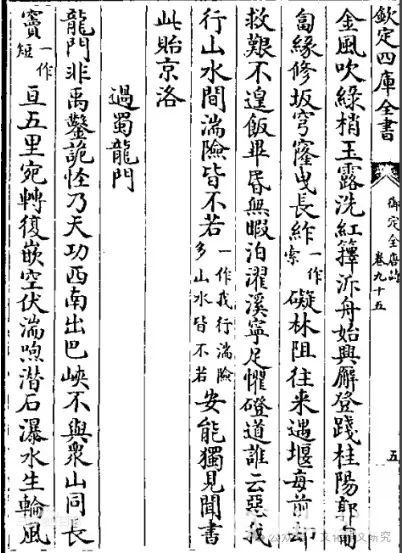 欽定四庫全書 御定全唐詩 卷九十五 五
金風吹緑梢玉露洗紅籜泝舟始興廨登踐桂陽郭匍
匐緣修坂穹窿曳長䋏一作索礙林阻往来遇堰每前却
救艱不遑飯畢昏無暇泊濯溪寧足懼磴道誰云惡我
行山水間湍險皆不若一作我行湍險多山水皆不若安能獨見聞書
此貽京洛
過蜀龍門
龍門非禹鑿詭怪乃天功西南出巴峽不與衆山同長
竇一作短亘五里宛轉復嵌空伏湍喣潛石瀑水生輪風